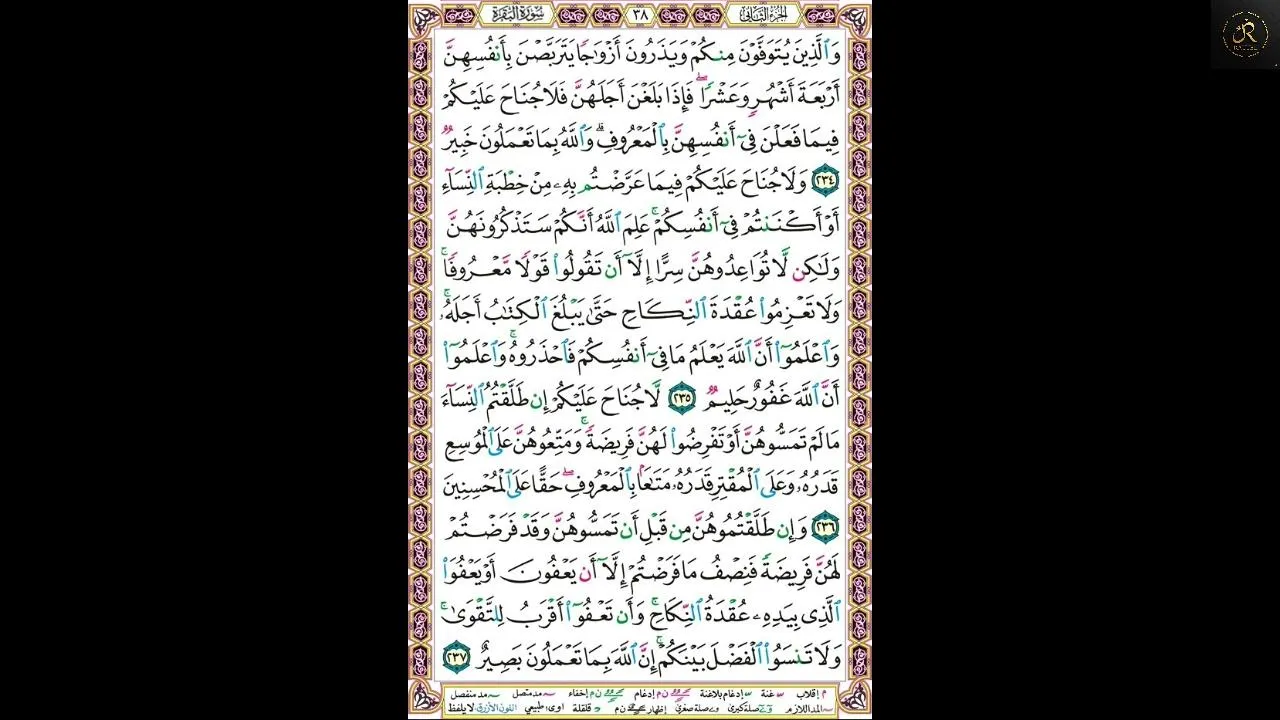 الجزء الثاني
٣٨
سورة البقرة
وَٱلَّذِينَ يُتَوَفَّوْنَ مِنكُمْ وَيَذَرُونَ أَزْوَٰجًا يَتَرَبَّصْنَ بِأَنفُسِهِنَّ
أَرْبَعَةَ أَشْهُرٍ وَعَشْرًا ۖ فَإِذَا بَلَغْنَ أَجَلَهُنَّ فَلَا جُنَاحَ عَلَيْكُمْ
فِيمَا فَعَلْنَ فِىٓ أَنفُسِهِنَّ بِٱلْمَعْرُوفِ ۗ وَٱللَّهُ بِمَا تَعْمَلُونَ خَبِيرٌ
٢٣٤ وَلَا جُنَاحَ عَلَيْكُمْ فِيمَا عَرَّضْتُم بِهِۦ مِنْ خِطْبَةِ ٱلنِّسَآءِ
أَوْ أَكْنَنتُمْ فِىٓ أَنفُسِكُمْ ۚ عَلِمَ ٱللَّهُ أَنَّكُمْ سَتَذْكُرُونَهُنَّ
وَلَٰكِن لَّا تُوَاعِدُوهُنَّ سِرًّا إِلَّآ أَن تَقُولُوا۟ قَوْلًا مَّعْرُوفًا ۚ
وَلَا تَعْزِمُوا۟ عُقْدَةَ ٱلنِّكَاحِ حَتَّىٰ يَبْلُغَ ٱلْكِتَٰبُ أَجَلَهُۥ ۚ
وَٱعْلَمُوٓا۟ أَنَّ ٱللَّهَ يَعْلَمُ مَا فِىٓ أَنفُسِكُمْ فَٱحْذَرُوهُ ۚ وَٱعْلَمُوٓا۟
أَنَّ ٱللَّهَ غَفُورٌ حَلِيمٌ ٢٣٥ لَّا جُنَاحَ عَلَيْكُمْ إِن طَلَّقْتُمُ ٱلنِّسَآءَ
مَا لَمْ تَمَسُّوهُنَّ أَوْ تَفْرِضُوا۟ لَهُنَّ فَرِيضَةً ۚ وَمَتِّعُوهُنَّ عَلَى ٱلْمُوسِعِ
قَدَرُهُۥ وَعَلَى ٱلْمُقْتِرِ قَدَرُهُۥ مَتَٰعًۢا بِٱلْمَعْرُوفِ ۖ حَقًّا عَلَى ٱلْمُحْسِنِينَ
٢٣٦ وَإِن طَلَّقْتُمُوهُنَّ مِن قَبْلِ أَن تَمَسُّوهُنَّ وَقَدْ فَرَضْتُمْ
لَهُنَّ فَرِيضَةً فَنِصْفُ مَا فَرَضْتُمْ إِلَّآ أَن يَعْفُونَ أَوْ يَعْفُوَا۟
ٱلَّذِى بِيَدِهِۦ عُقْدَةُ ٱلنِّكَاحِ ۚ وَأَن تَعْفُوٓا۟ أَقْرَبُ لِلتَّقْوَىٰ ۚ
وَلَا تَنسَوُا۟ ٱلْفَضْلَ بَيْنَكُمْ ۚ إِنَّ ٱللَّهَ بِمَا تَعْمَلُونَ بَصِيرٌ ٢٣٧
م إقلاب غنة إدغام بلاغنة ن م إدغام ن م إخفاء مد متصل مد منفصل
المد اللازم صلة كبرى صلة صغرى إظهار ن م قلقلة اوى طبيعي اللون الأزرق لا يلفظ